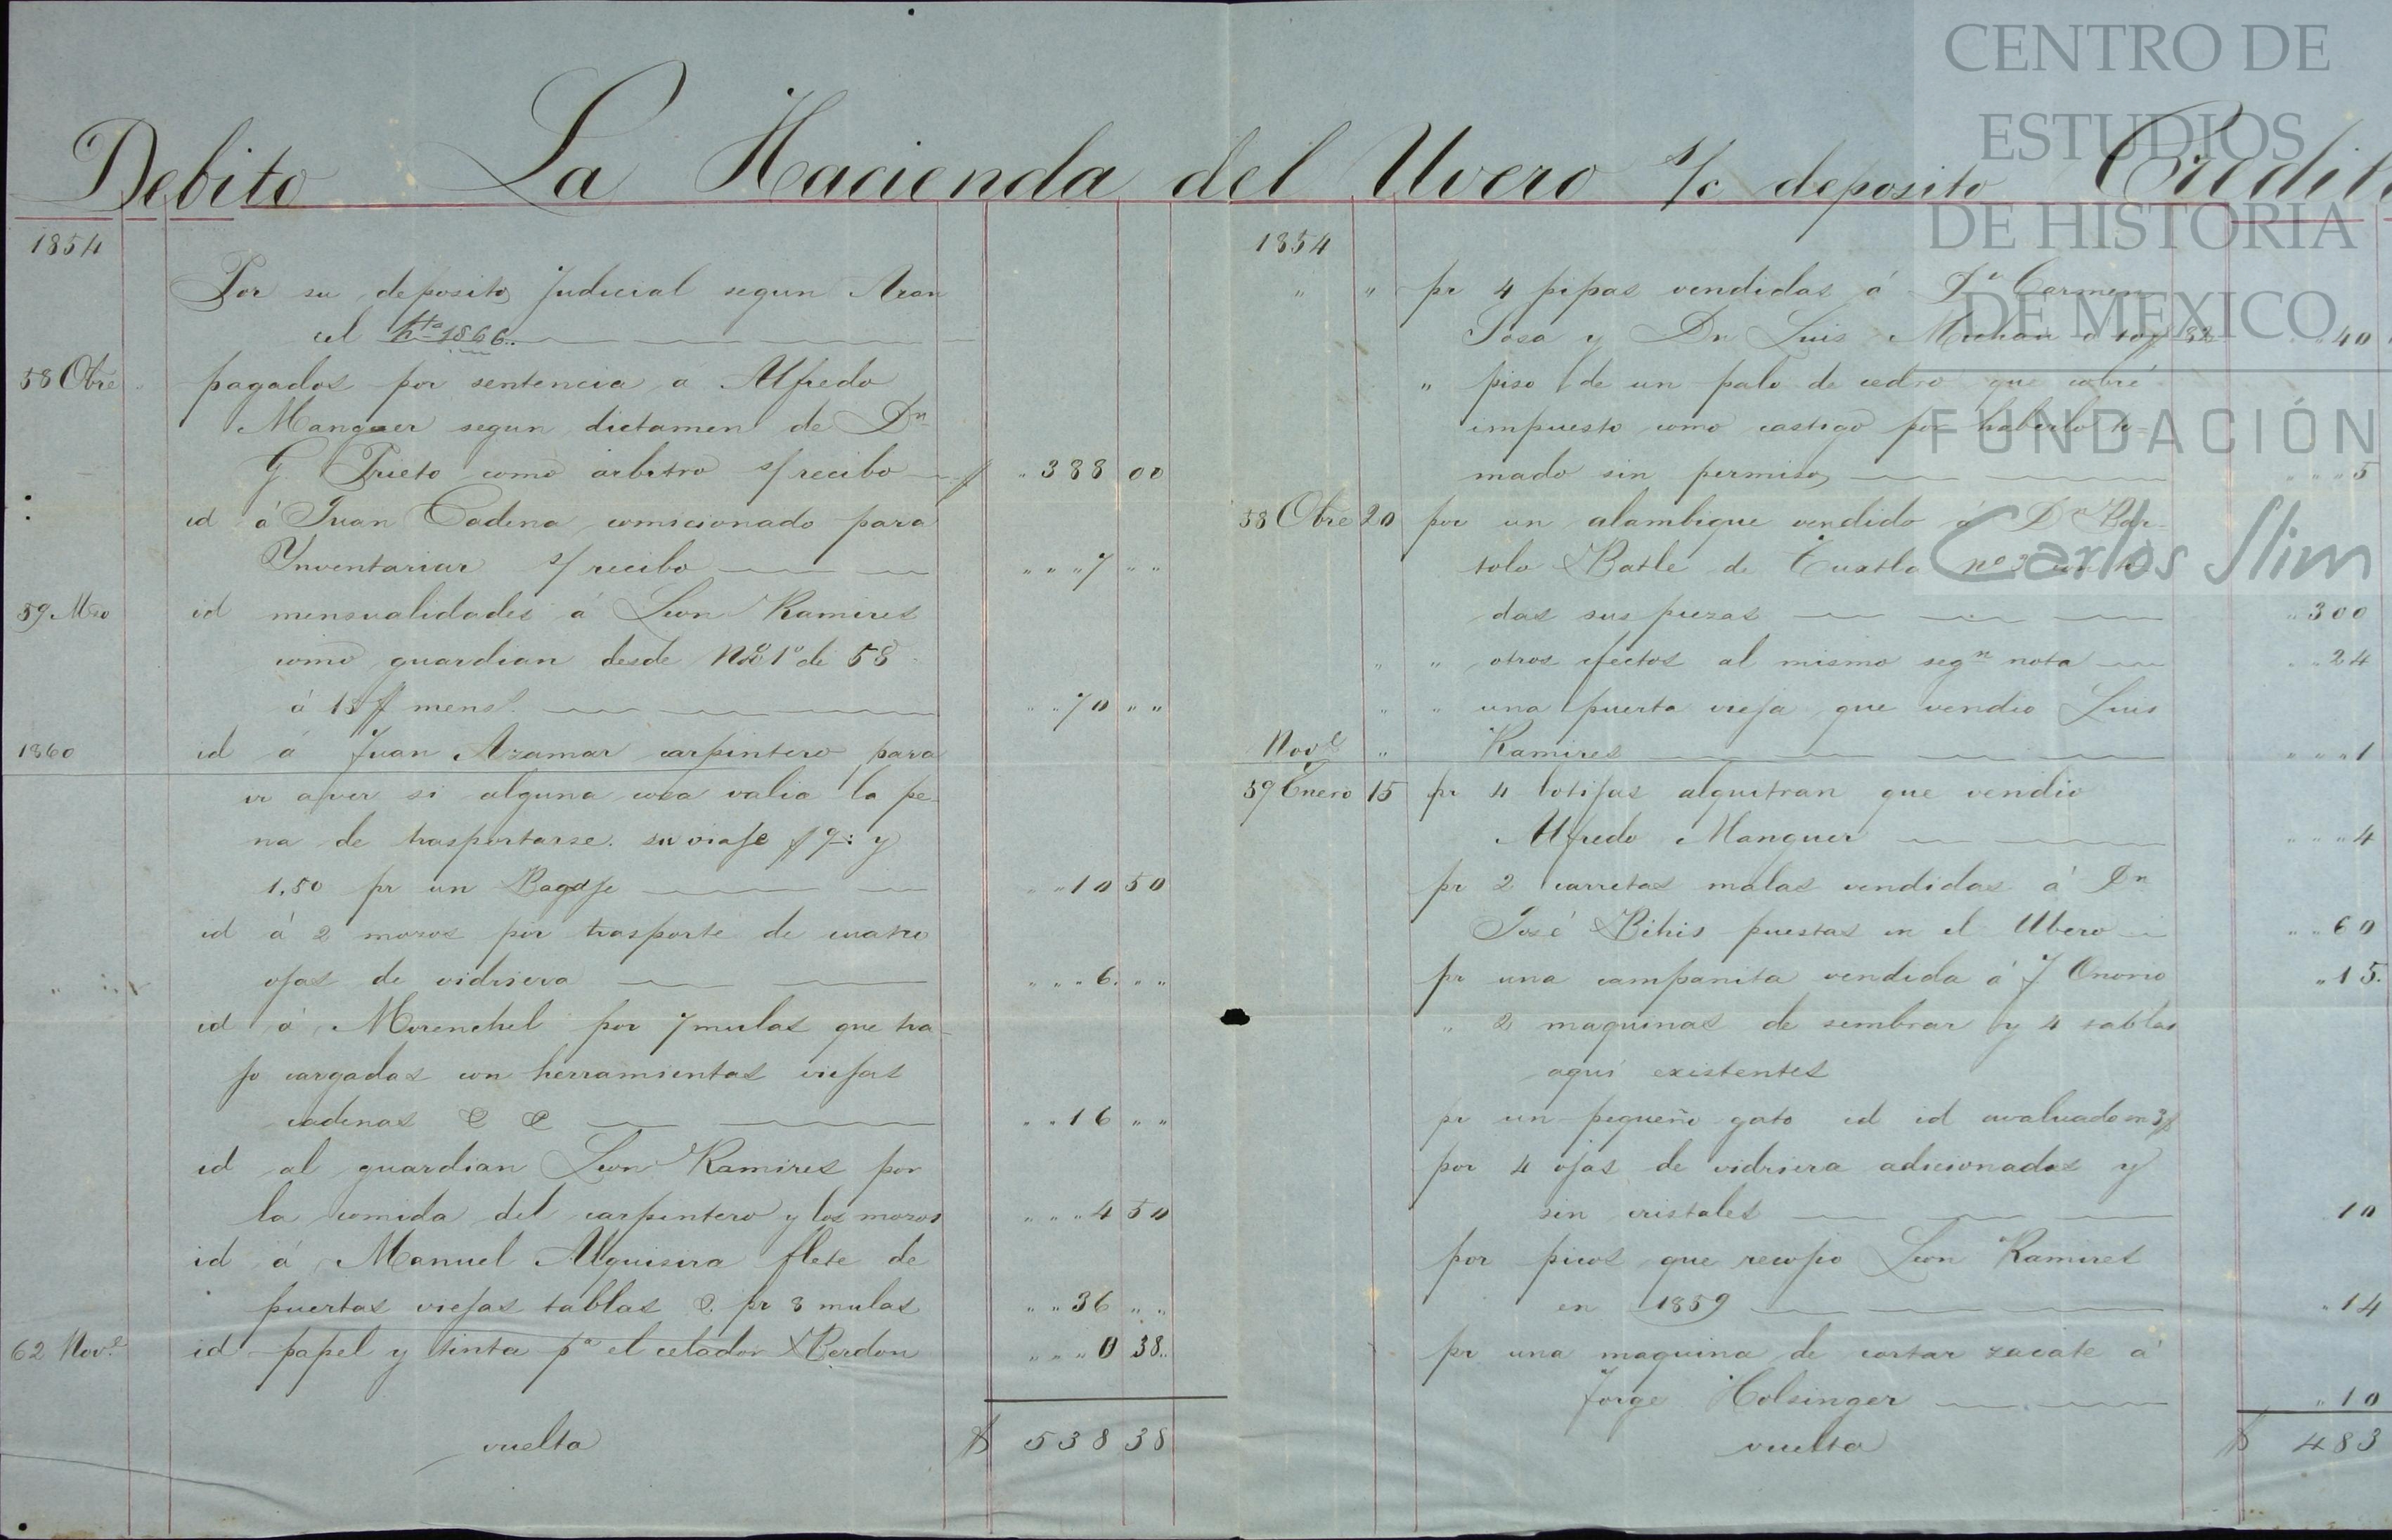 Debito La Hacienda del Uvero s/c deposito Credito
1854
Por su deposito Judicial segun Aran
cel hta 1866.
58 Obre pagados por sentencia a Alfredo
Manguer segun dictamen de Dn
G. Prieto como arbitro s/ recibo $ 388 00
id á Juan Cadena comicionado para
Ynventariar s/ recibo 7 " "
59 Mzo id mensualidades á Leon Ramires
como guardian desde 1º de 58
á 15 $ mensl. 70 " "
1860 id a Juan Azamar carpintero para
ir a ver si alguna cosa valia la pe-
na de trasportarse. su viaje $ 9: y
1,50 pr un Bagaje 10 50
id á 2 mozos por trasporte de cuatro
ojas de vidriera 6. " "
id á Morenchel por 7 mulas que tra-
jo cargadas con herramientas viejas
cadenas & & 16 " "
id al guardian Leon Ramires por
la comida del carpintero y los mozos 4 50
id á Manuel Alquisira flete de
puertas viejas tablas &. pr 8 mulas 36 " "
62 Nove id papel y tinta pa el celador Berdon 0 38
vuelta $ 538 38
1854
" " pr 4 pipas vendidas á Da Carmen
Sosa y Dn Luis á 10 $ 40
" piso de un palo de cedro que cobré
impuesto como castigo por haberlo to-
mado sin permiso 5
58 Obre 20 por un alambique vendido á Dn Bar-
tolo Batle de Tuxtla nº 3 con to-
das sus piezas 300
" " otros efectos al mismo segn nota 24
" " una puerta vieja que vendio Luis
Nove " Ramires 1
59 Enero 15 pr 4 botijas alquitran que vendio
Alfredo Manguer 4
pr 2 carretas malas vendidas á Dn
José Bihis puestas en el Ubero 60
pr una campanita vendida á J Onorio 15.
" 2 maquinas de sembrar y 4 tablas
aqui existentes
pr un pequeño gato id id avaluado en 3 $
por 4 ojas de vidriera adicionadas y
sin cristales 10
por picos que recojio Leon Ramires
en 1859 14
pr una maquina de cortar zacate á
Jorge Holsinger 10
vuelta $ 483
CENTRO DE
ESTUDIOS
DE HISTORIA
DE MEXICO
FUNDACIÓN
Carlos Slim